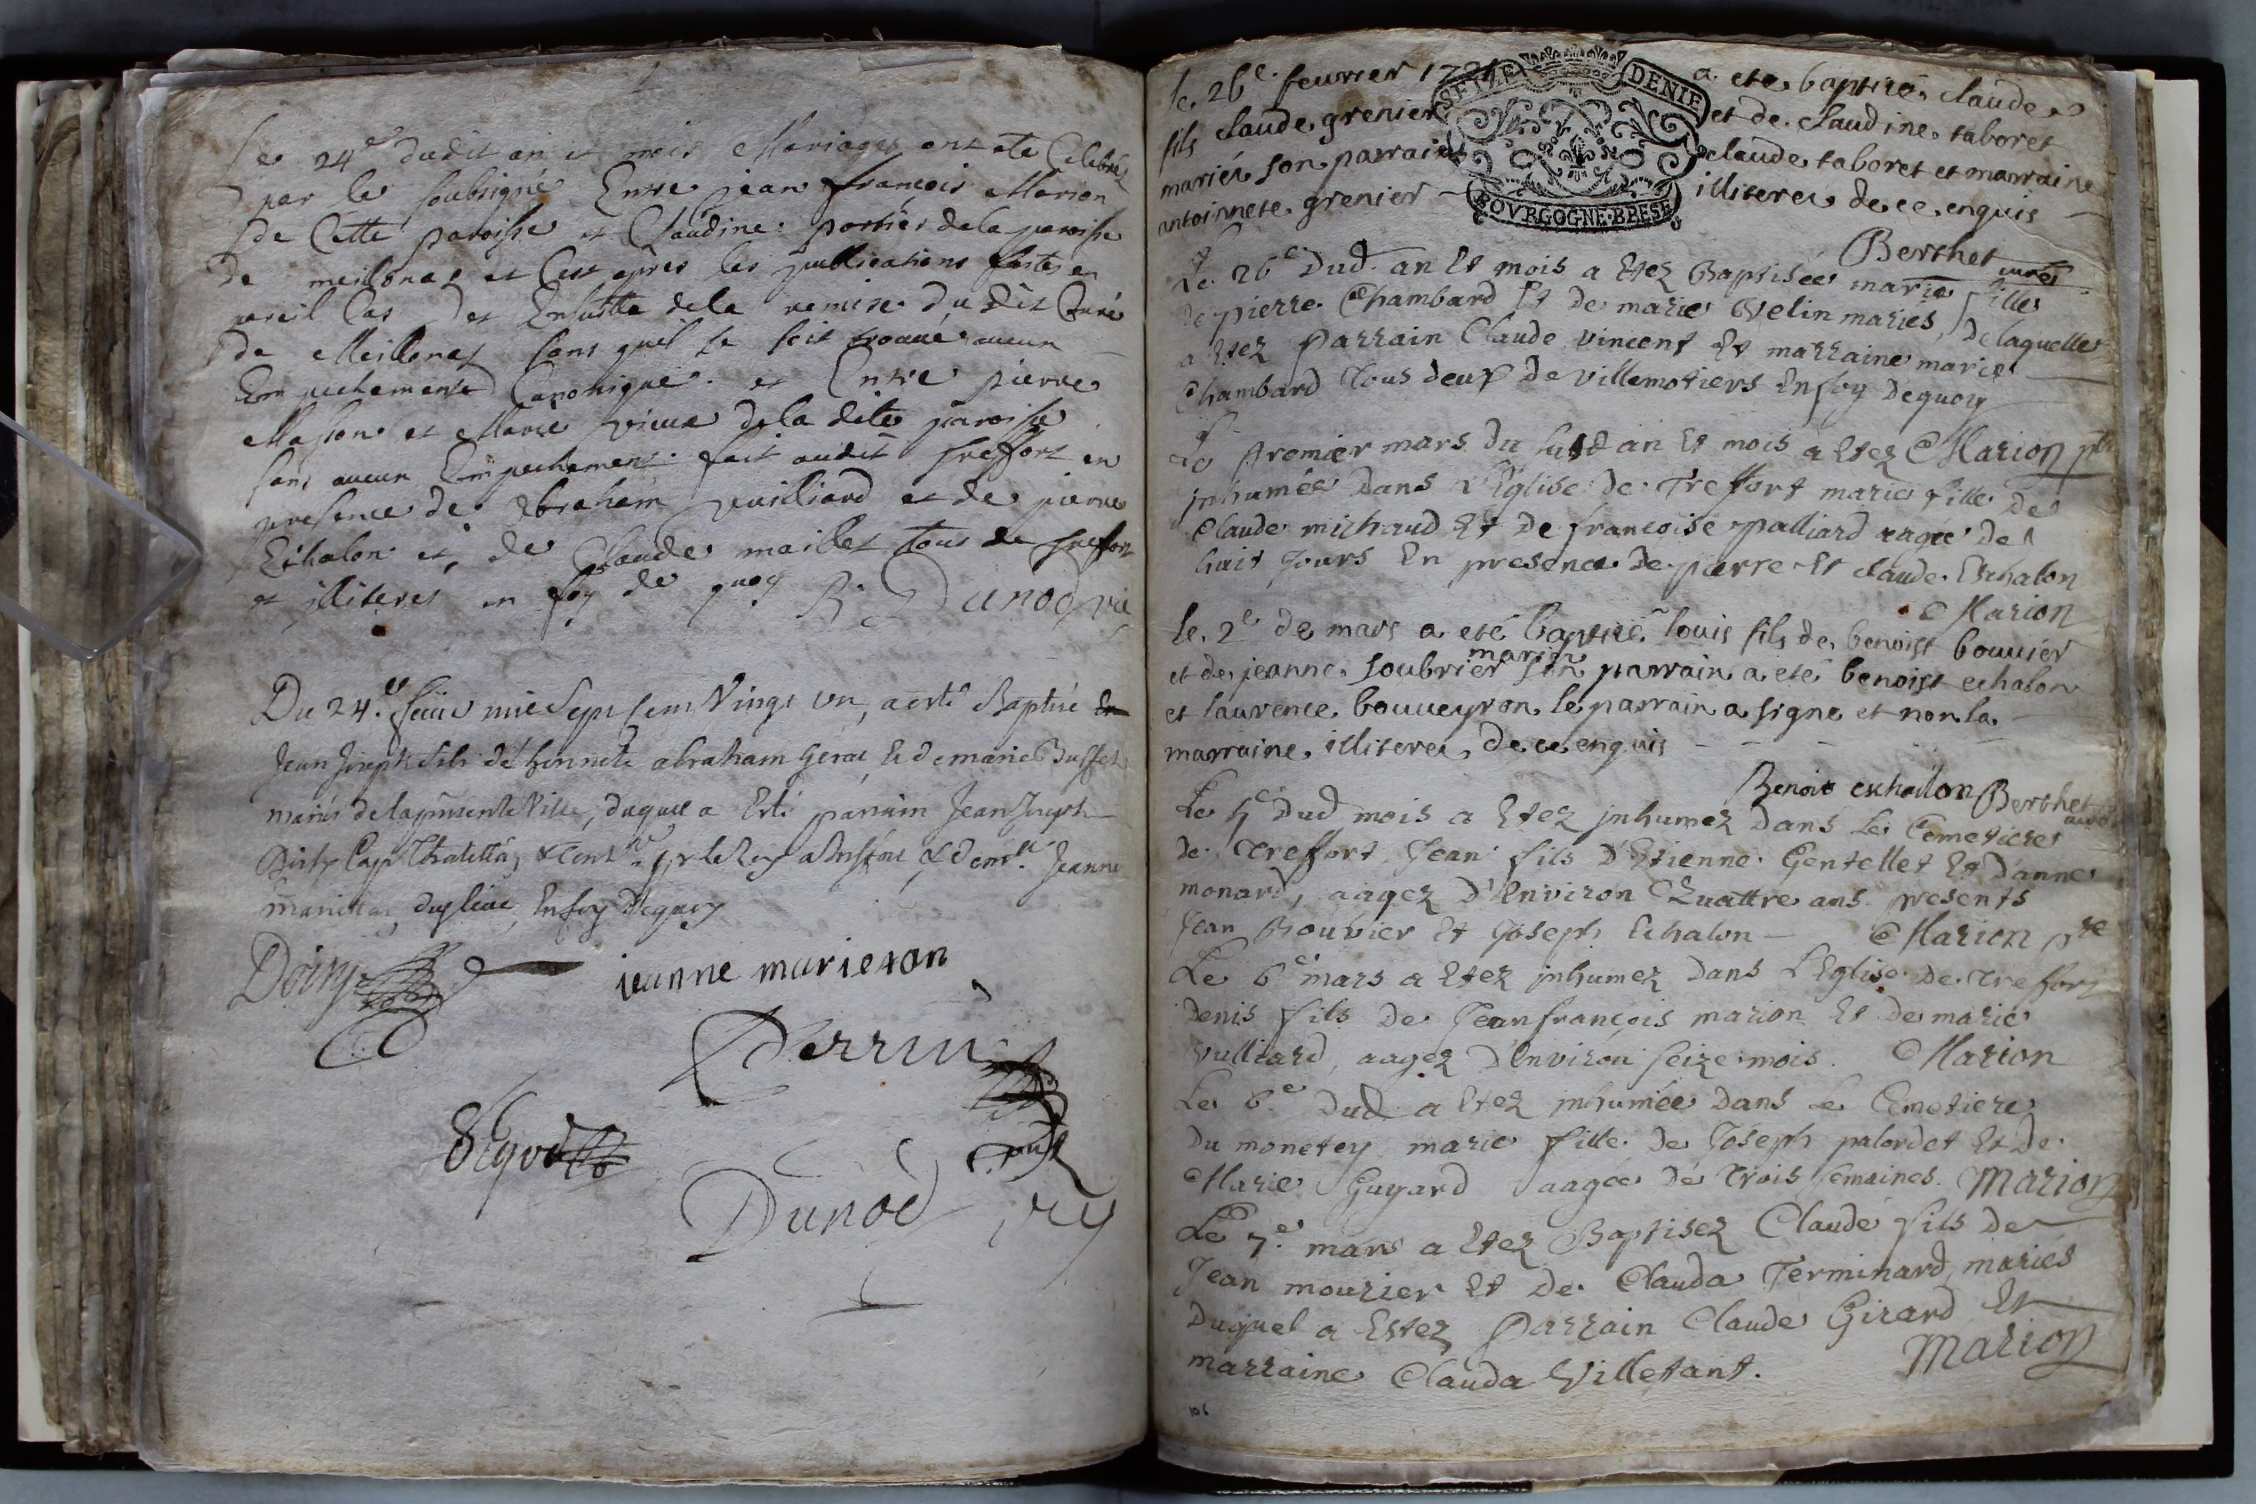 Le 24e dudit an et mois Mariages ont ete Celebrés
par le soubsigné Entre jean françois Marion
de Cette paroisse et Claudine portier de la paroisse
de meillonas et Cest apres les publications faites en
pareil Cas et Ensuitte de la remise du dit Curé
de Meillonas sans quil se soit trouué aucun
Empechement Canonique et Entre pierre
Masson et Marie vieux de la dite paroisse
sans aucun Empechement fait audit treffort en
presence de Abraham vuilliard et de pierre
Echalon et de Claude maillet tous de treffort
et illiterés en foy de quoy Dunod vic
Du 24e mil Sept Cent Vingt Un, a esté Baptisé
Jean Joseph fils de honnete abraham Gerat & de marie Buffet
mariés de la pnsente Ville, duquel a Esté parrain Jean Joseph
Jeanne
marieton Enfoy Dequoy
jeanne marieton
Perrin
Dunod vic
le 26e feurier 1721 a ete baptisé claude
fils claude grenier et de claudine taboret
mariés son parrain claude taboret et marraine
antoinnete grenier illiteres de ce enquis
SEIZE DENIE
BOVRGOGNE·BRESE
Berthet curé
Le 26e Dud. an Et mois a Etez Baptisée marie fille
de pierre Chambard Et de marie Velin mariés, De laquelle
a Etez Parrain Claude Vincent Et marraine marie
Chambard tous deux De Villemotiers En foy Dequoy
Marion ptre
Le Premier mars Du susd an Et mois a Etez
jnhumée Dans L'Eglise De Treffort marie fille De
Claude michaud Et De francoise palliard aagée De
huit Jours En presence De pierre Et claude Echalon
Marion
le 2e de mars a eté baptisé louis fils de benoist bouuier
et de jeanne soubrier mariés son parrain a eté benoist echalon
et laurence bouueyron le parrain a signe et non la
marraine illiteree de ce enquis
Benoit exhallon Berthet curé
Le 5e Dud mois a Etez jnhumez Dans Le Cemetiere
de Treffort Jean fils D'Etienne Gentellet Et D'anne
monard, aagez D'Environ Quattre ans presents
Jean Bouvier Et Joseph Echalon Marion ptre
Le 6e mars a Etez jnhumez Dans L'Eglise De Trefort
Denis fils De Jeanfrançois marion Et De marie
vulliard, aagez D'Environ seize mois. Marion
Le 6e Dud a Etez jnhumée Dans Le Cemetiere
Du monetey marie fille De Joseph palordet Et De
Marie Guyard aagée De trois semaines. Marion
Le 7e mars a Etez Baptisez Claude fils De
Jean mourier Et De Clauda Terminard mariés
Duquel a Estez Parrain Claude Girard Et
marraine Clauda Villetant. Marion
106